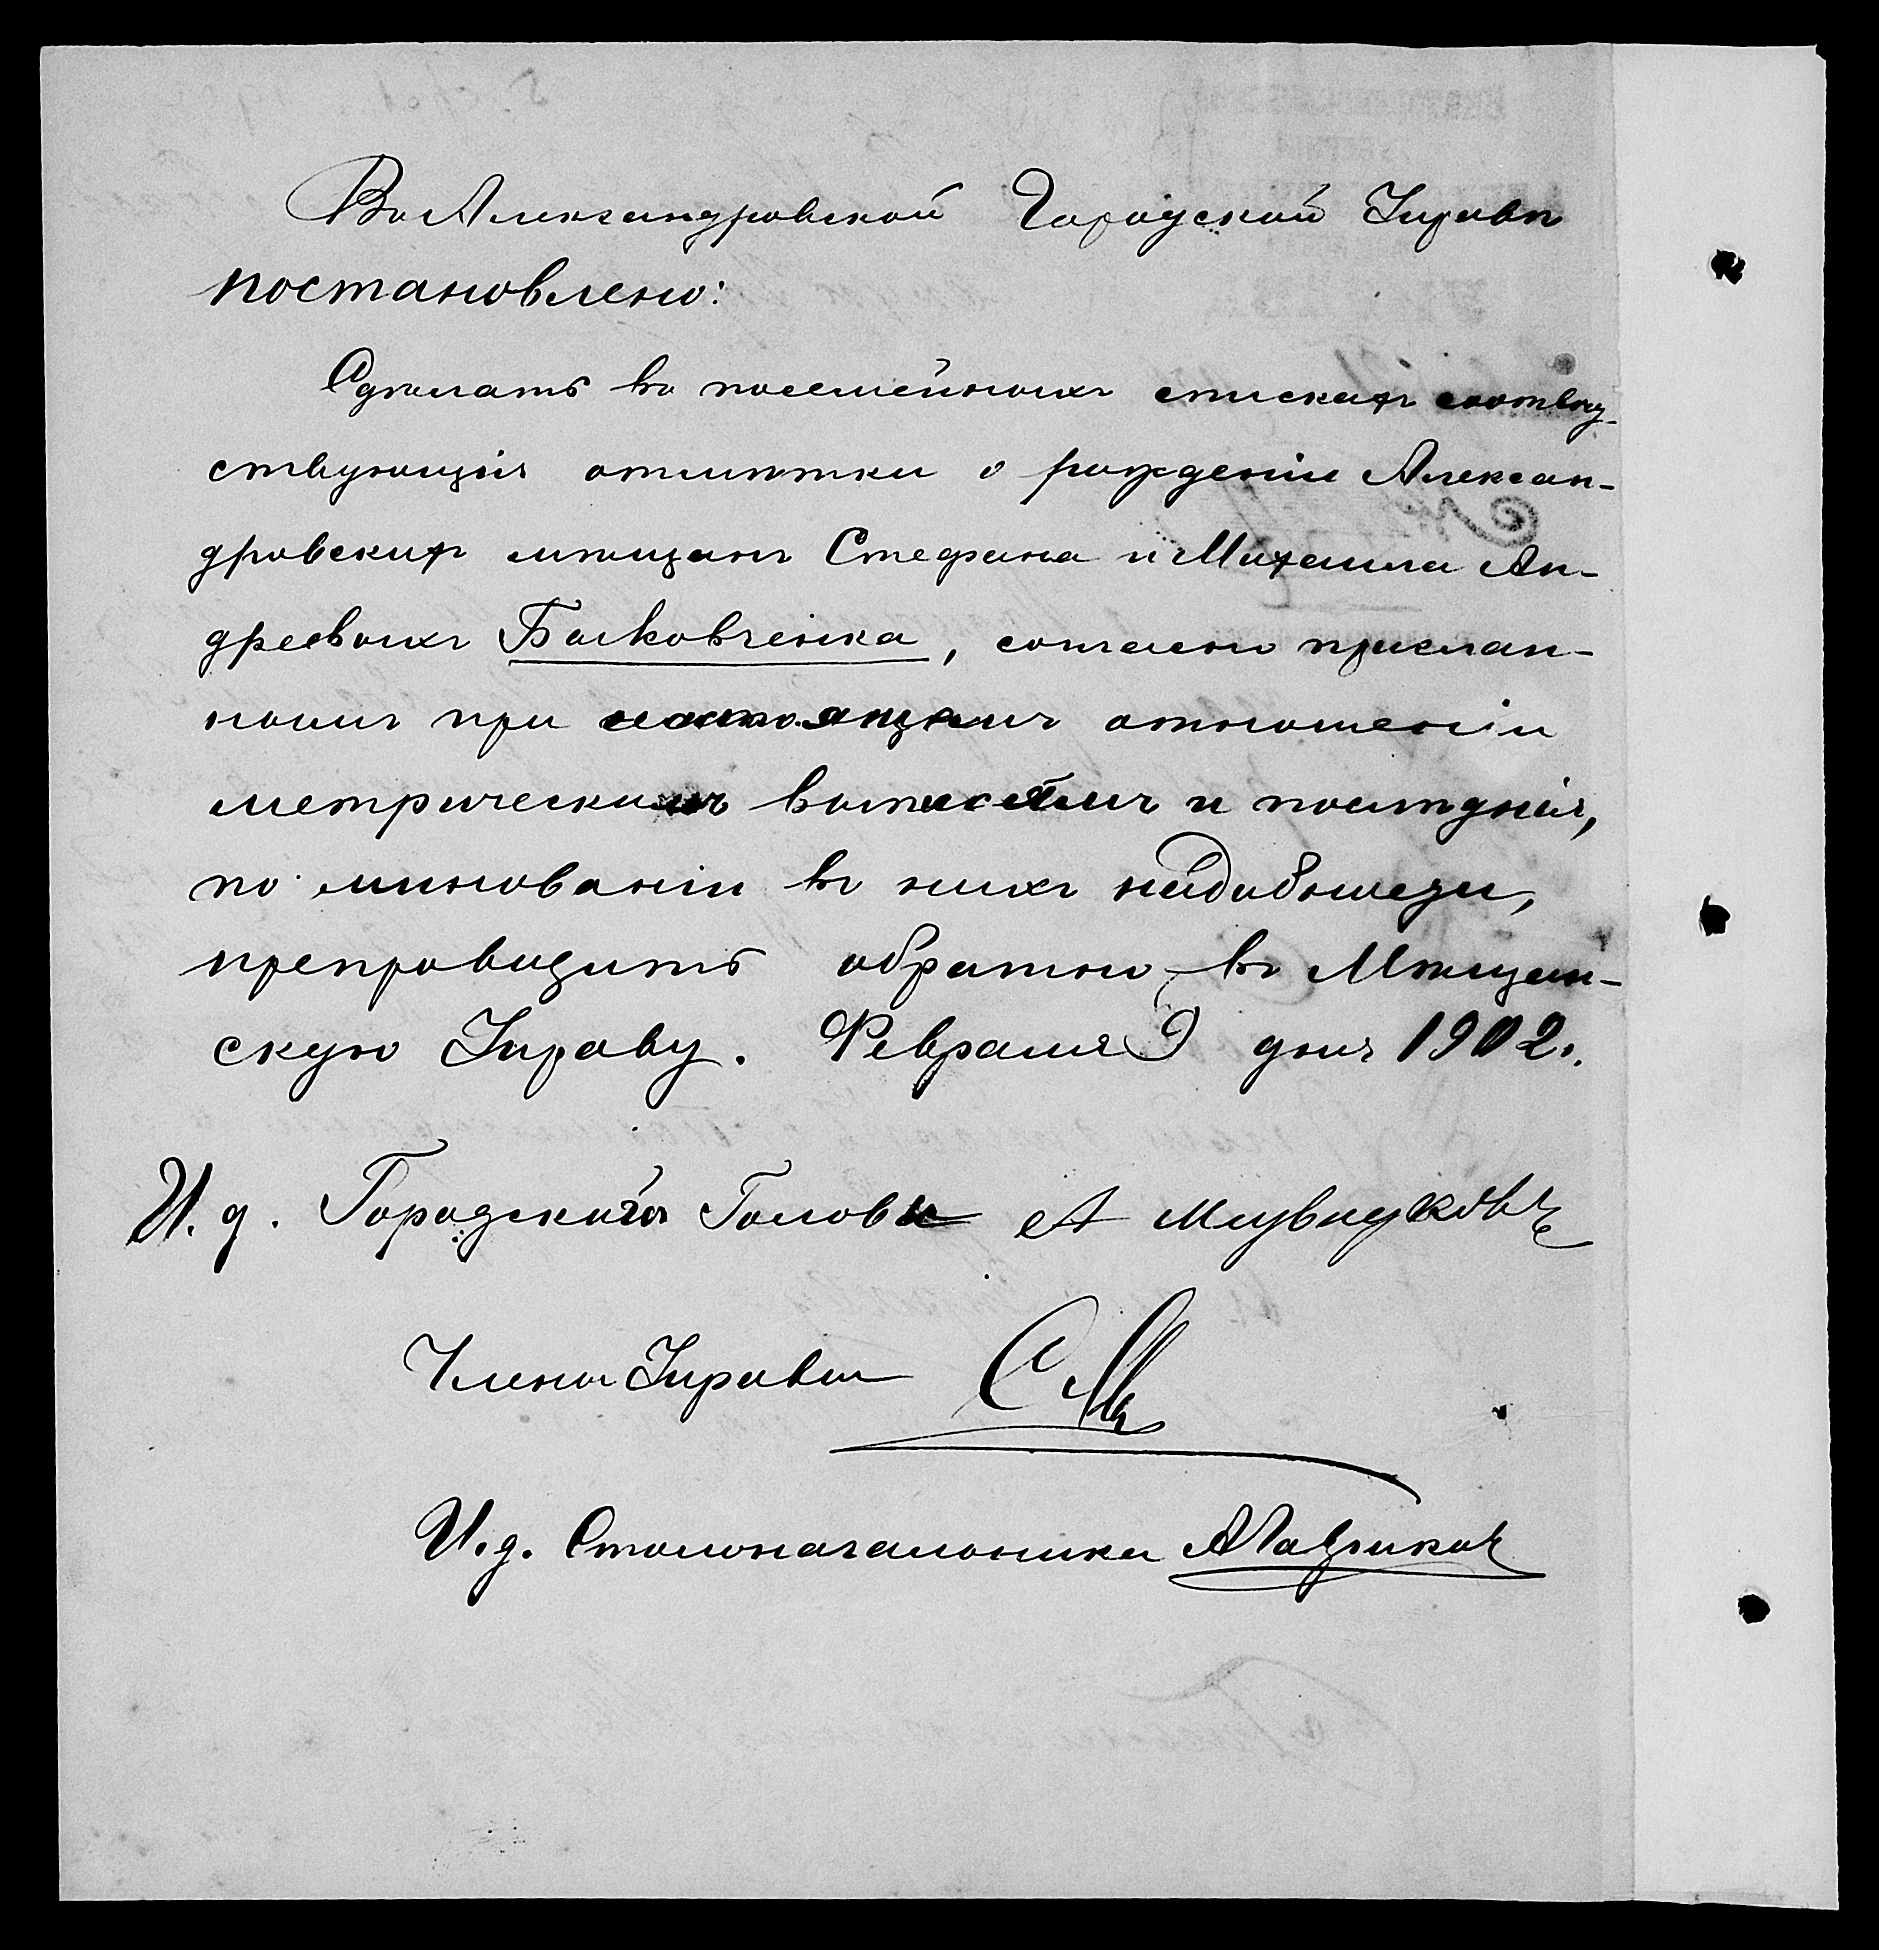 Въ Александровской Городской Управѣ
постановлено:
Сдѣлать въ посемейныхъ спискахъ соотвѣт-
ствующія отмѣтки о рожденіи Алексан-
дровскихъ мѣщанъ Стефана и Михаила Ан-
дреевыхъ Быковченка, согласно прислан-
нымъ при настоящемъ отношеніи
метрическимъ выписямъ и послѣднія,
по минованіи въ нихъ надобности,
препроводить обратно въ Мѣщан-
скую Управу. Февраля 9 дня 1902 г.
И. д. Городского Головы А
Члены Управы
И. д. Столоначальника